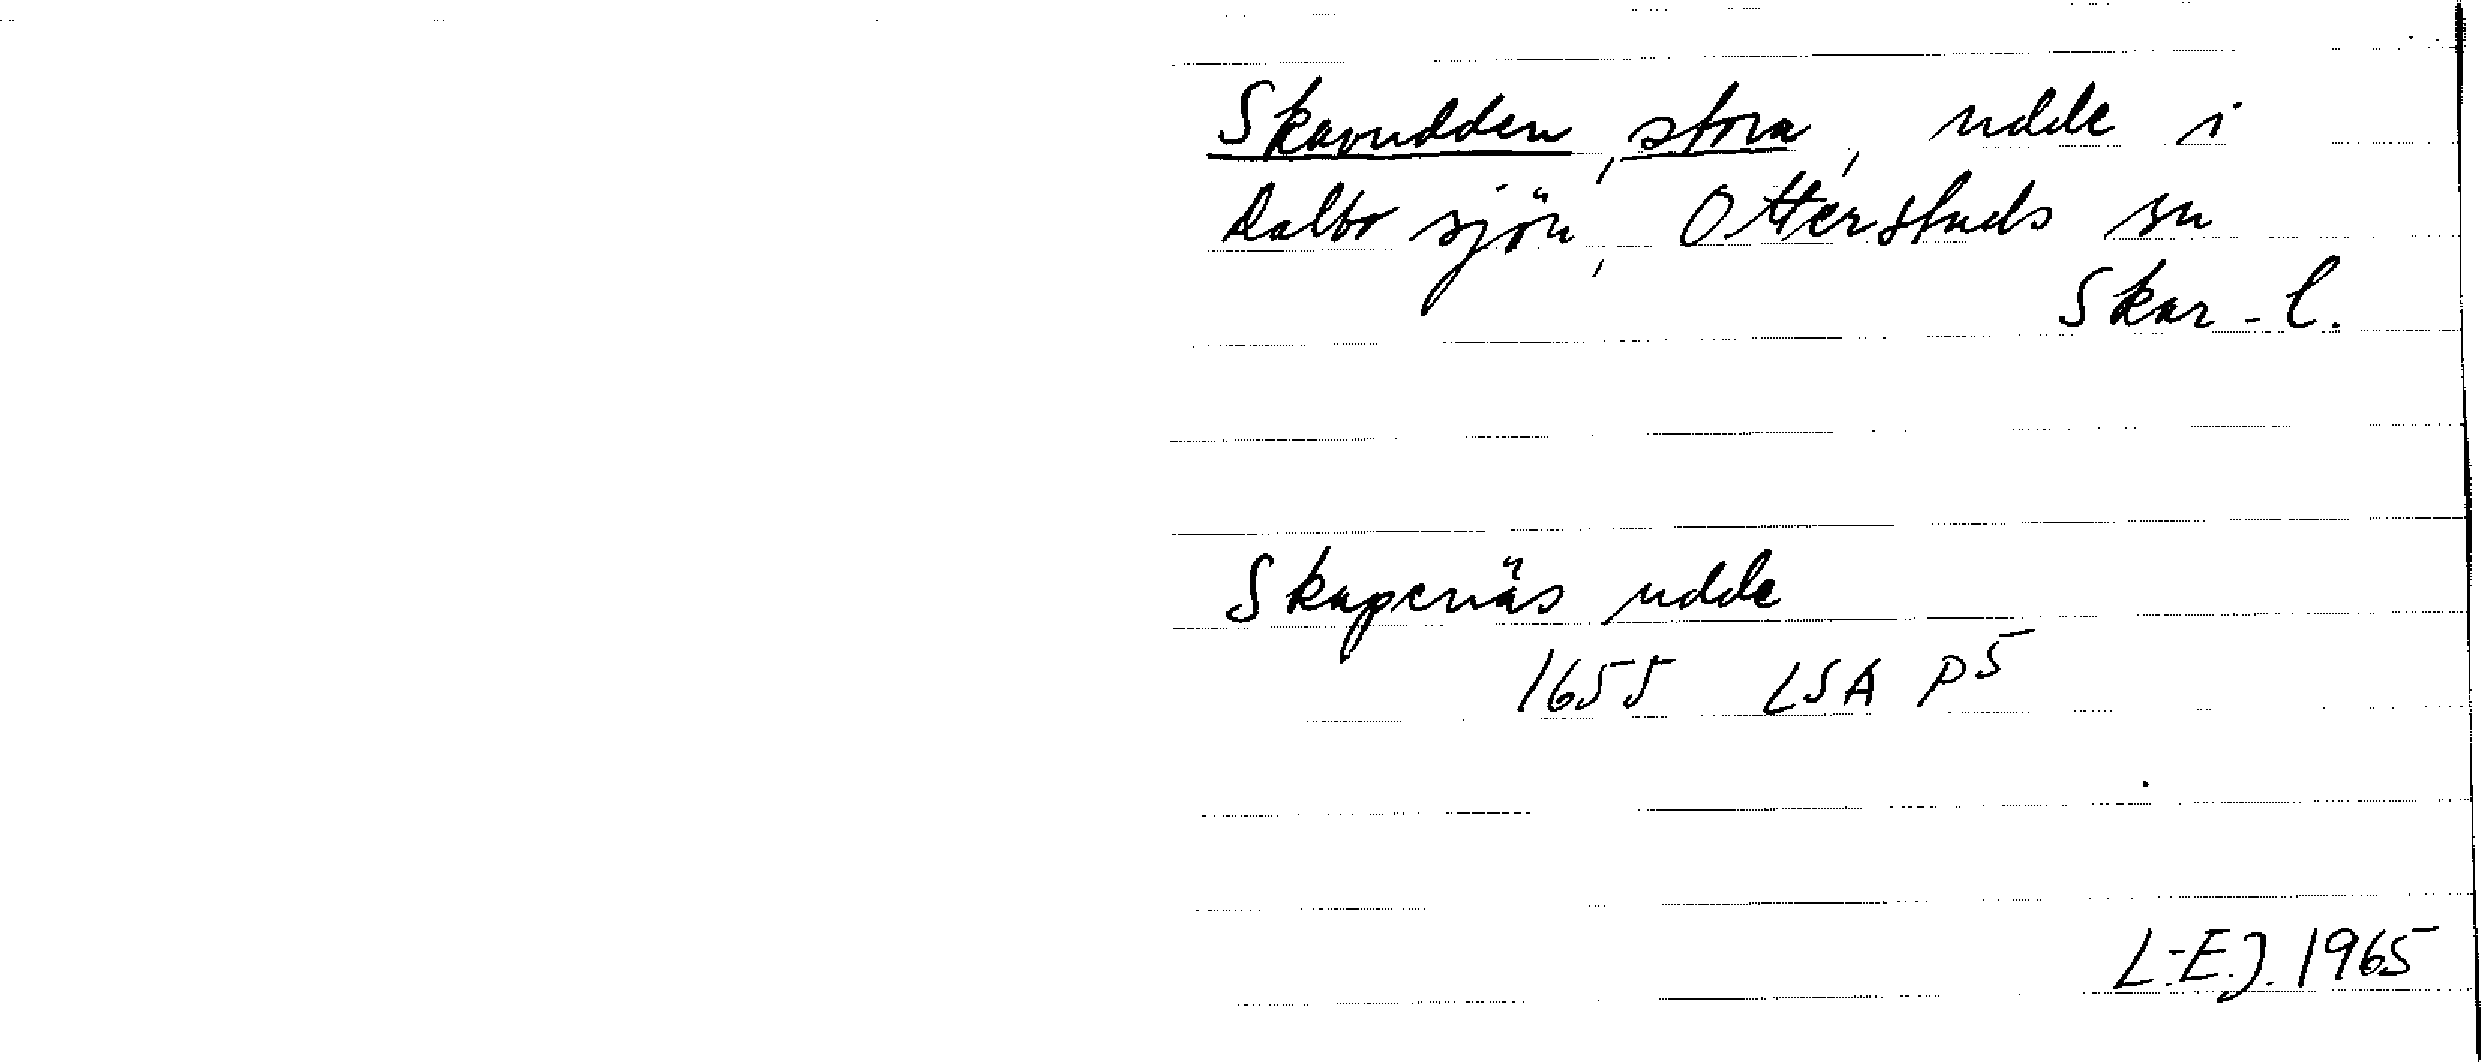 Skavudden, stora, udde i
Dalbosjön, Otterstads sn
Skar-l.
Skapenäs udde
1655 LSA P5
L-E.J. 1965